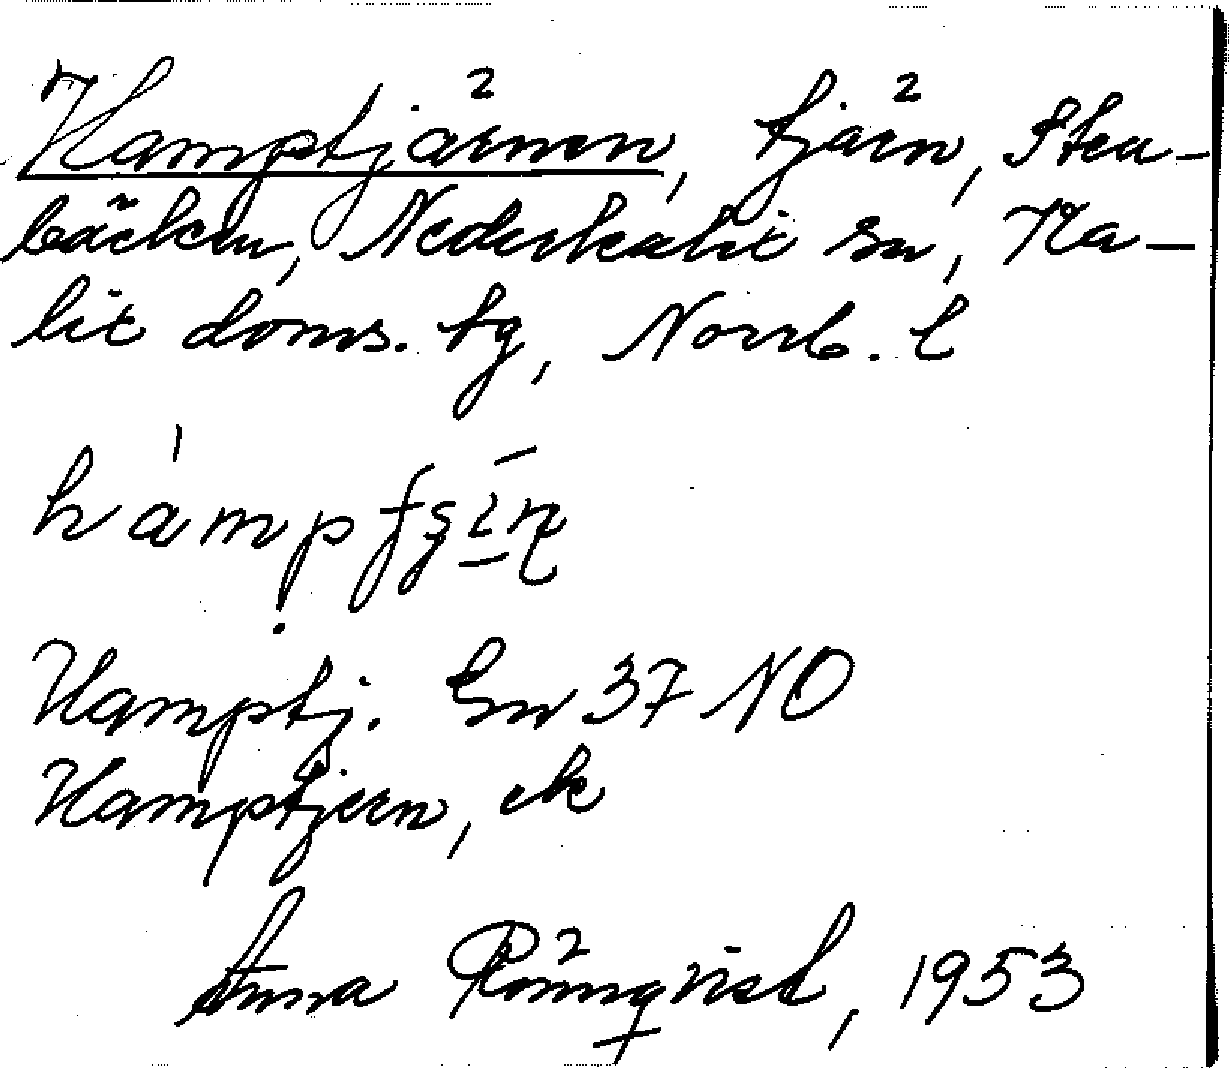 Hamptjärnen, tjärn, Sten-
bäcken, Nederkalix sn, Ka-
lix doms. tg, Norrb. l
Hamptj. Gn 37 NO
Hamptjern, ek
Anna Rönnqvist, 1953